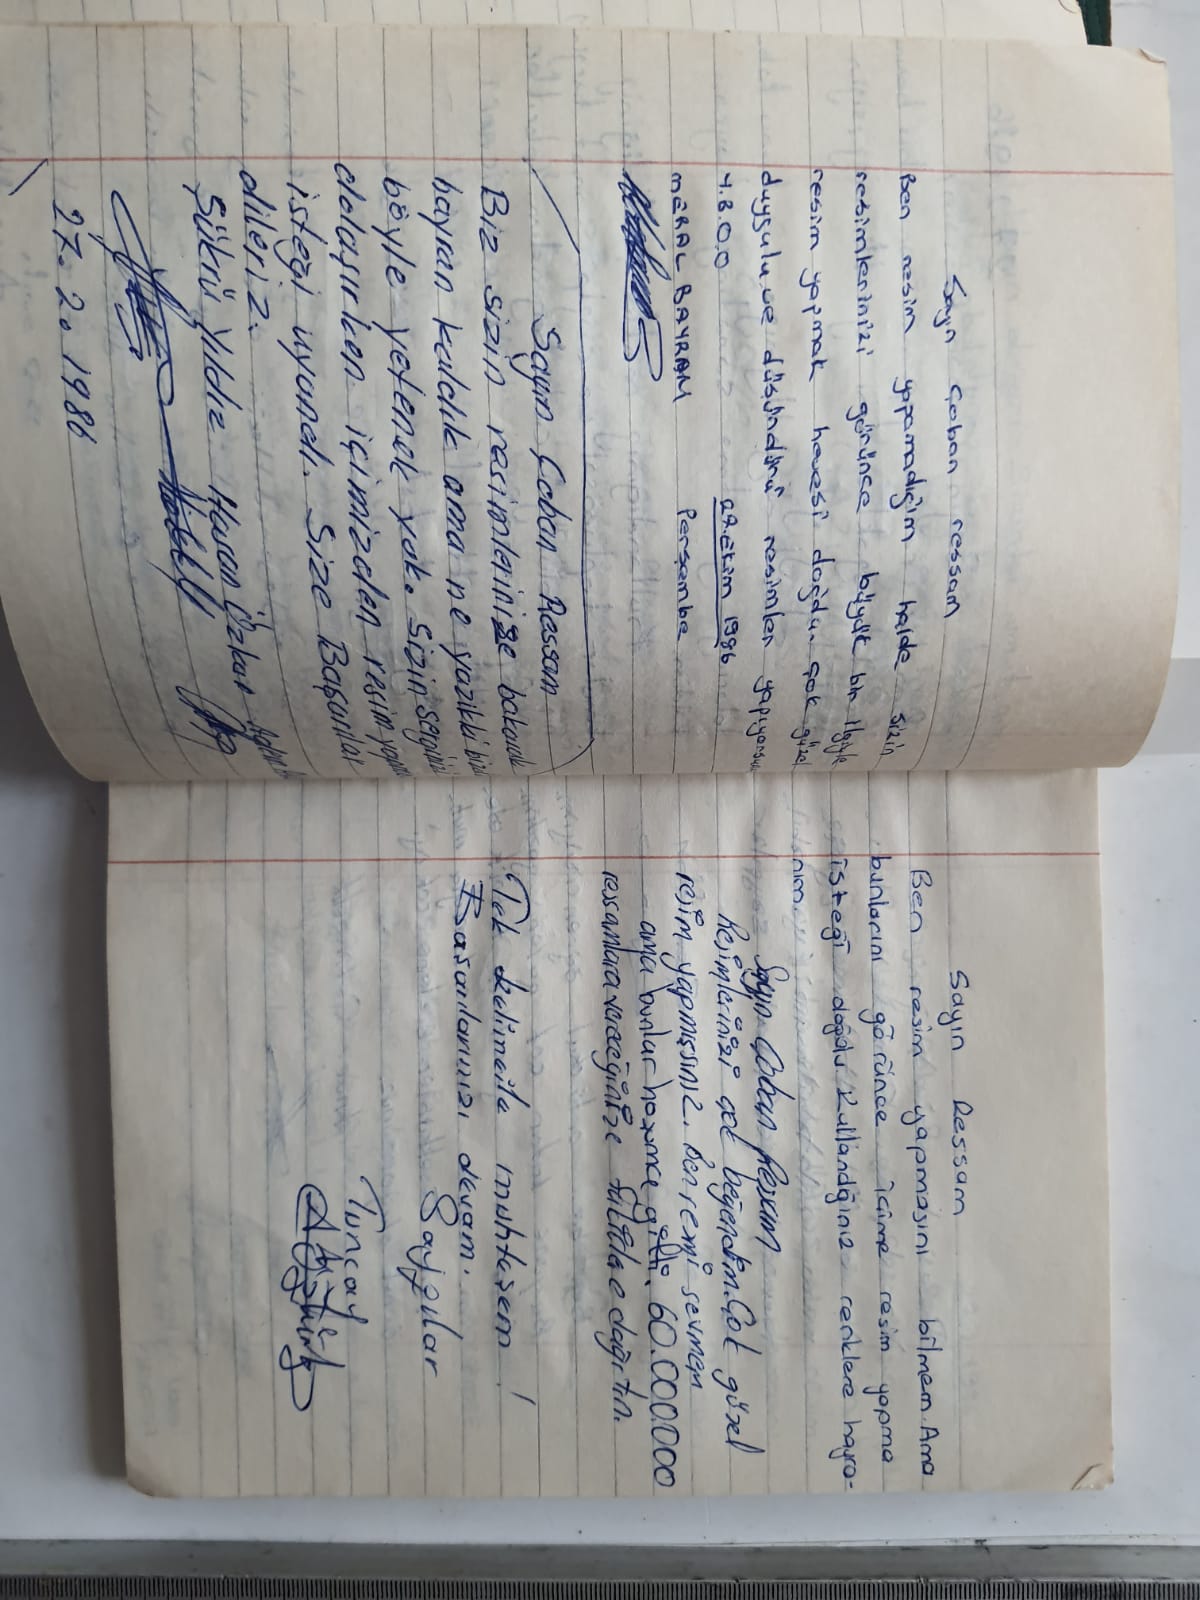 Sayın Çoban ressam
Ben resim yapamadığım halde sizin
resimlerinizi görünce büyük bir ilgiyle
resim yapmak hevesi doğdu. çok güzel
duygulu ve düşündürü resimler yapıyorsun
4.B.O.O 27.Ekim 1986
MERAL BAYRAM Perşembe
Sayın Çoban Ressam
Biz sizin resimlerinize bakarak
hayran kaldık ama ne yazıkki bizde
böyle yetenek yok. Sizin serginizi
dolaşırken içimizden resim yapma
isteği uyandı. Size Başarılar
dileriz.
Şükrü Yıldız Harun Özkan
27.2.1986
Sayın Ressam
Ben resim yapmasını bilmem. Ama
bunlarını görünce içime resim yapma
isteği doğdu. Kullandığınız renklere hayra-
nım.
Sayın Çoban Resim
Resimlerinizi çok beğendim. Çok güzel
resim yapmışsınız. Ben resmi sevmem
ama bunlar hoşuma gitti. 60.000.000
ressamlara vereceğinize fakirlere dağıtın.
Tek kelimeile muhteşem!
Başarılarınızı devam.
Saygılar
Tuncay